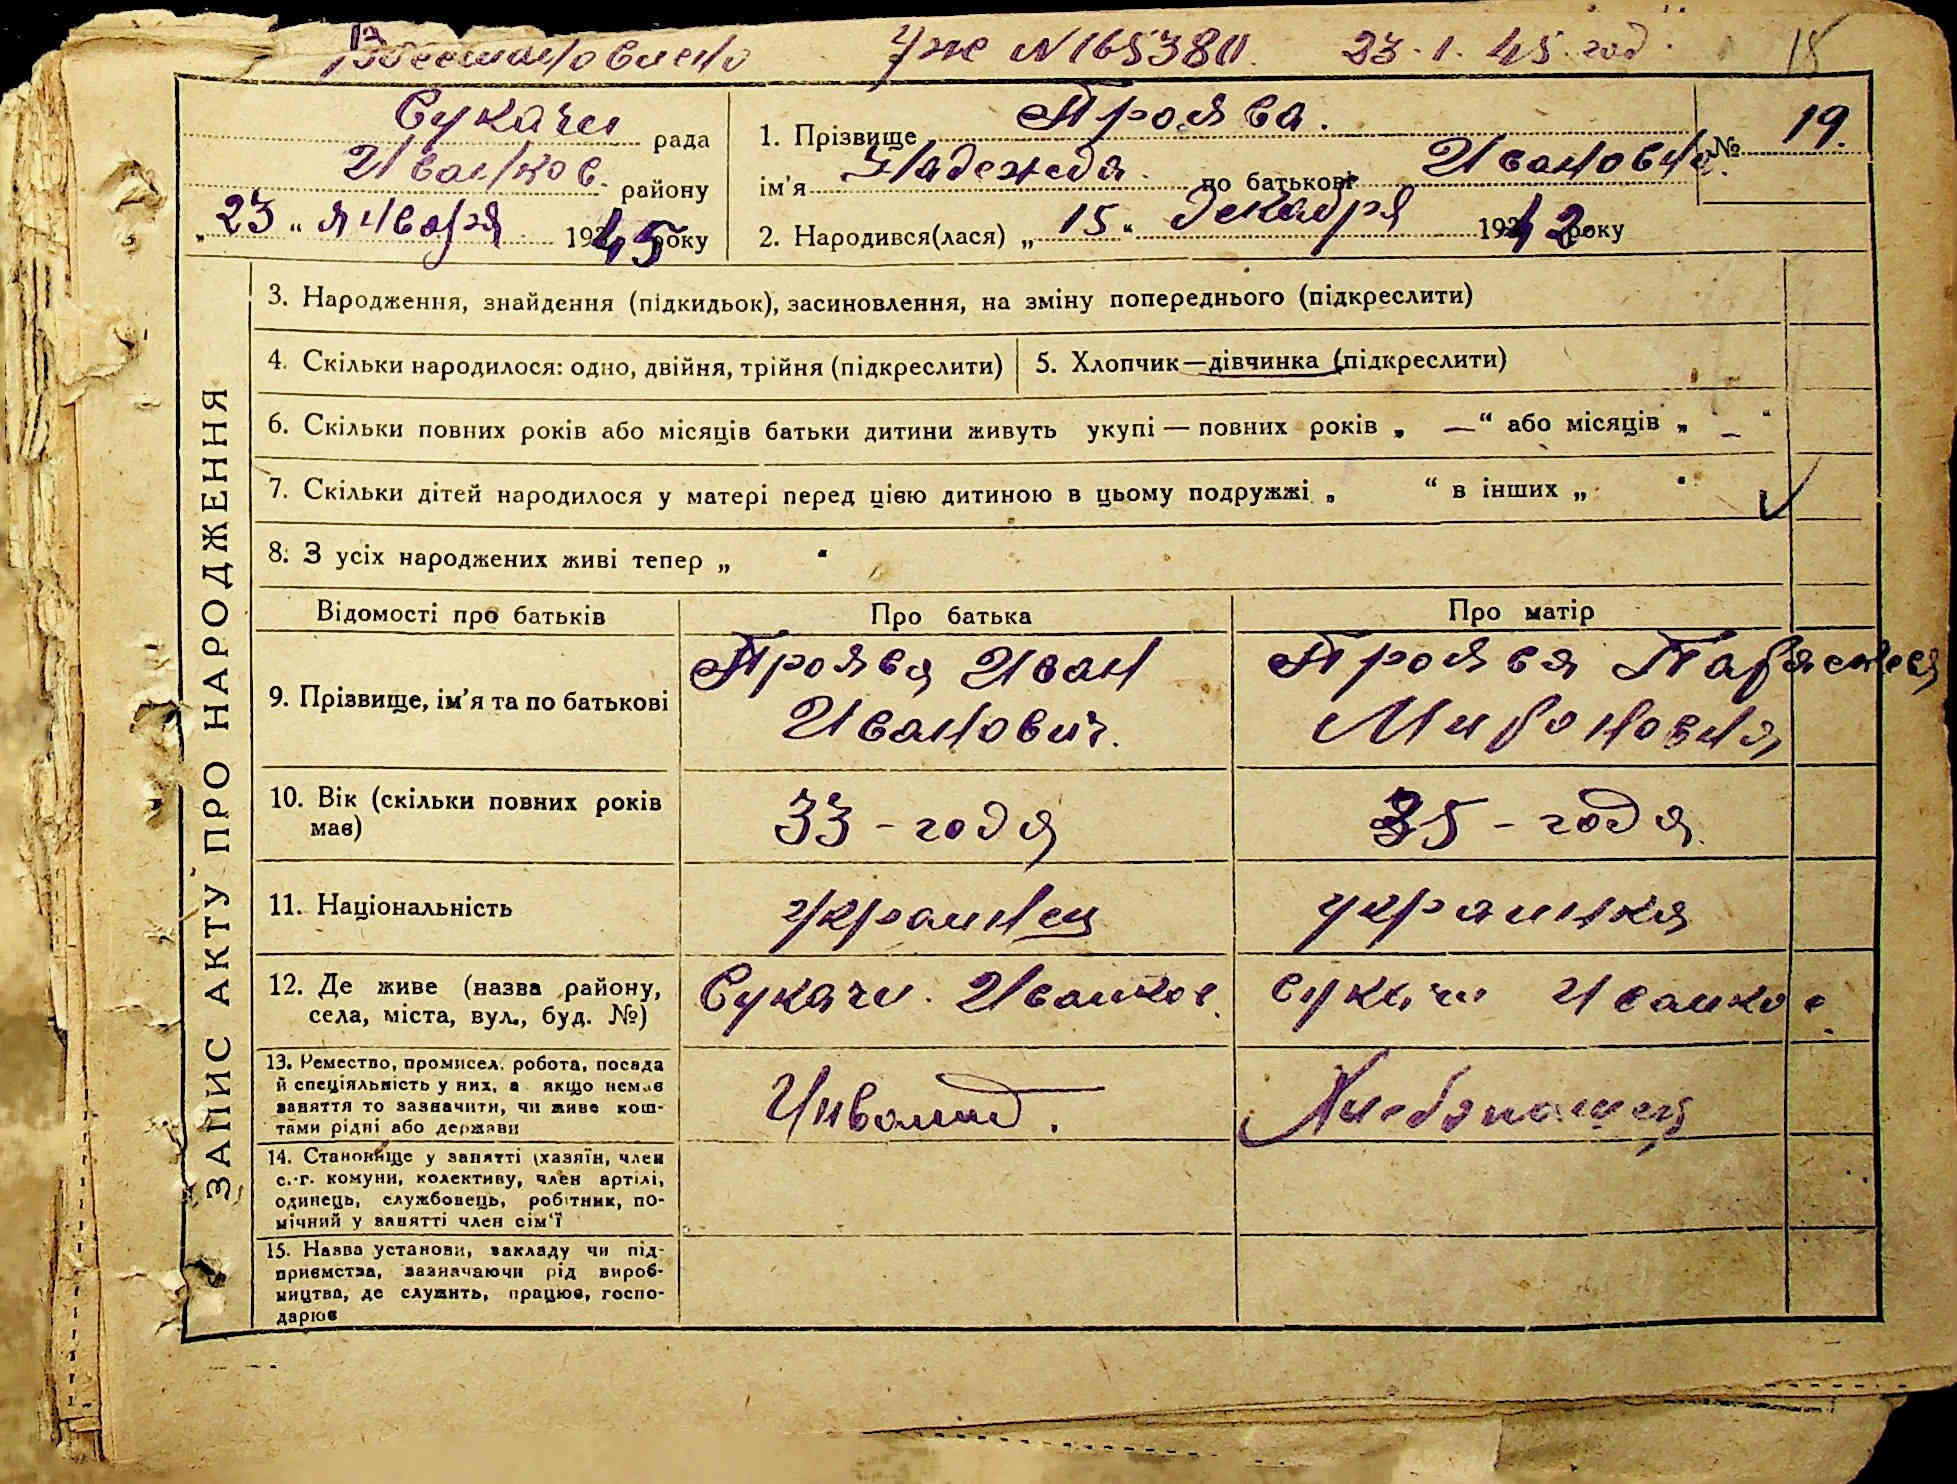 Восстановлено Уже N 165380. 23.1.45 год. 18
Сукачи рада
Иванков. району
„23“ января 1945 року
1. Прізвище Проява.
ім'я Надежда. по батькові Ивановна.
№ 19.
2. Народився(лася) „15“ декабря 1942 року
ЗАПИС АКТУ ПРО НАРОДЖЕННЯ
3. Народження, знайдення (підкидьок), засиновлення, на зміну попереднього (підкреслити)
4. Скільки народилося: одно, двійня, трійня (підкреслити) 5. Хлопчик—дівчинка (підкреслити)
6. Скільки повних років або місяців батьки дитини живуть укупі — повних років „ —“ або місяців „ — “
7. Скільки дітей народилося у матері перед цією дитиною в цьому подружжі „ “ в інших „ “
8. З усіх народжених живі тепер „ “
Відомості про батьків Про батька Про матір
9. Прізвище, ім'я та по батькові
Проява Иван
Иванович.
Проява Параскева
Мироновна
10. Вік (скільки повних років
має)
33 - года
35 - года.
11. Національність
украинец
украинка
12. Де живе (назва району,
села, міста, вул., буд. №)
Сукачи. Иванков.
Сукачи Иванков.
13. Ремество, промисел, робота, посада
й спеціяльність у них, а якщо немає
заняття то зазначити, чи живе кош-
тами рідні або держави
Инвалид.
Хлебопашец
14. Становище у занятті (хазяїн, член
с.-г. комуни, колективу, член артілі,
одинець, службовець, робітник, по-
мічний у занятті член сім'ї
15. Назва установи, закладу чи під-
приємства, зазначаючи рід вироб-
ництва, де служить, працює, госпо-
дарює